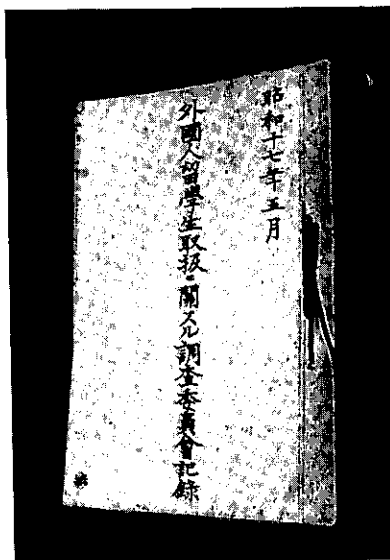 昭和十七年五月
外國人留學生取扱ニ關スル調査委員會記錄